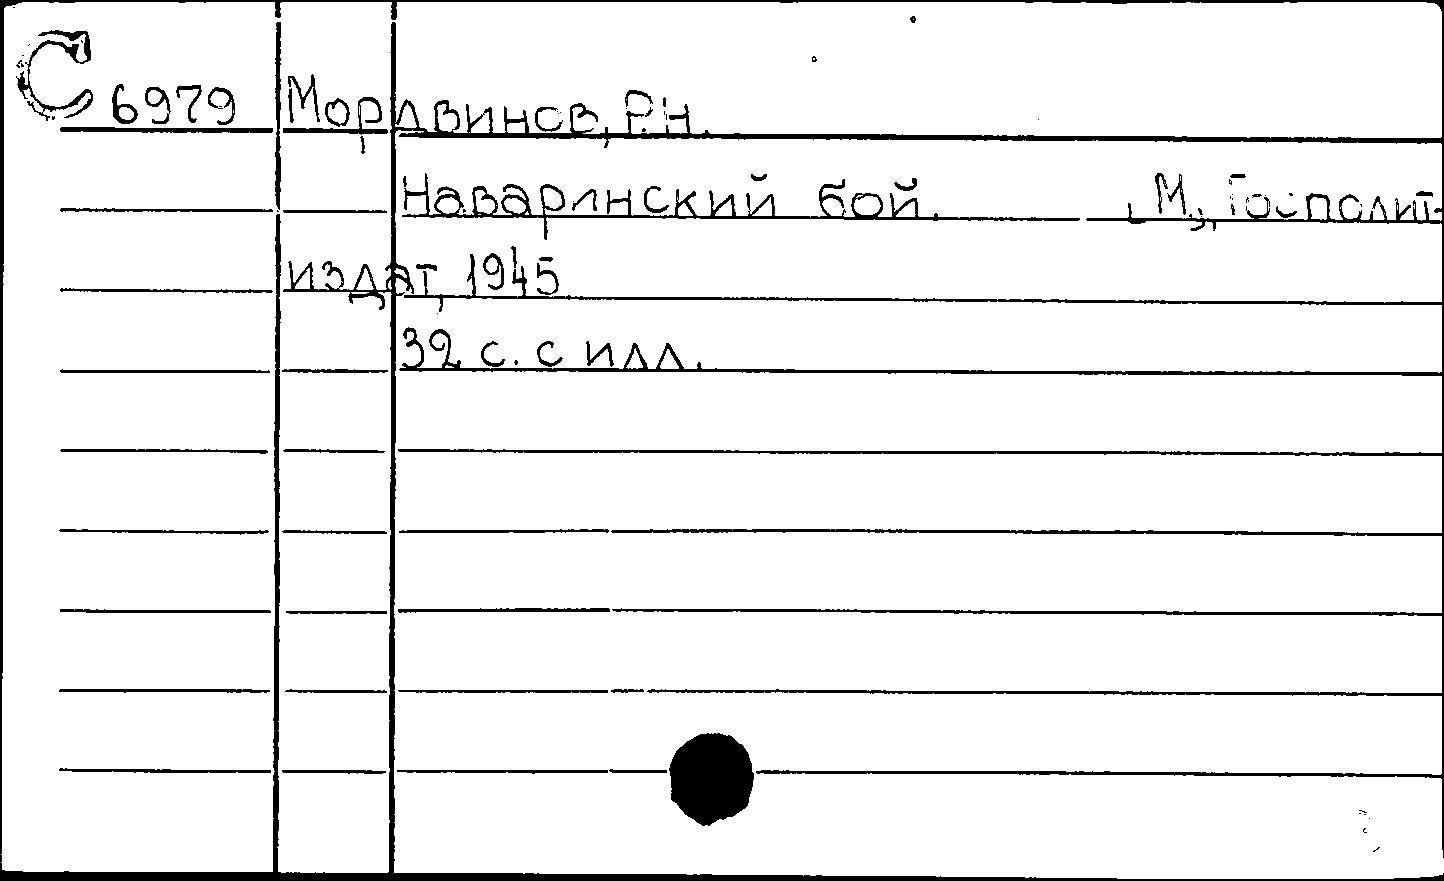 С 6979 Мордвинов, Р.Н.
Наваринский бой. М., Госполит-
издат, 1945
32 с. с илл.